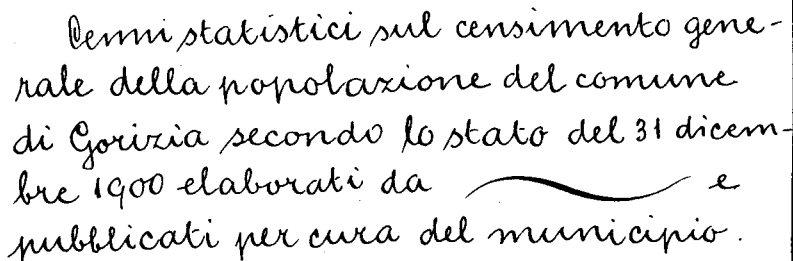 Cenni statistici sul censimento gene-
rale della popolazione del comune
di Gorizia secondo lo stato del 31 dicem-
bre 1900 elaborati da e
pubblicati per cura del municipio.